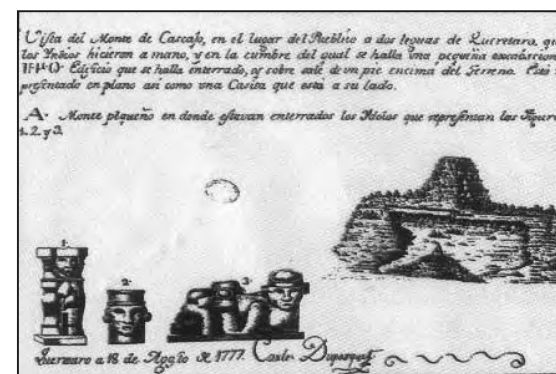 Vista del Monte de Cascajo, en el lugar del Pueblito a dos leguas de Queretaro, que
los Yndios hicieron a mano, y en la cumbre del qual se halla una pequeña
Edificio que se halla enterrado, y sobre sale de un pie encima del Terreno. Esta
presentado en plano asi como una Casita que está a su lado.
A. Monte pequeño en donde estavan enterrados los Ydolos que representan las Figuras
1. 2. y 3.
1.
2.
3.
Queretaro a 18 de Agosto de 1777. Carlos Duparquet